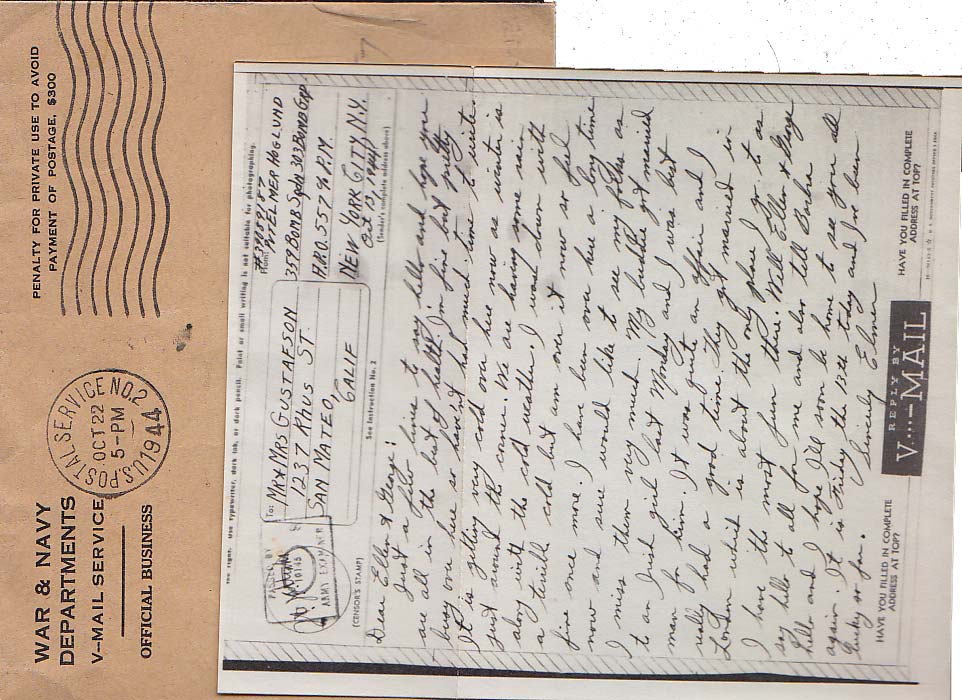 WAR & NAVY
DEPARTMENTS
V-MAIL SERVICE
OFFICIAL BUSINESS
PENALTY FOR PRIVATE USE TO AVOID
PAYMENT OF POSTAGE, $300
U.S. POSTAL SERVICE NO. 2
OCT 22
5-PM
1944
use typewriter, dark ink, or dark pencil. Faint or small writing is not suitable for photographing.
To:
MR & MRS GUSTAFSON
1237 RHUS ST.
SAN MATEO,
CALIF
From:
PVT ELMER HOGLUND
359 BOMB SQDN 303 BOMB GP
A.P.O. 557 % P.M.
NEW YORK CITY N.Y.
Oct 13, 1944
(Sender's complete address above)
PASSED BY
10145
ARMY EXAMINER
(CENSOR'S STAMP)
See Instruction No. 2
Dear Ellen & George:
Just a few lines to say hello and hope you
are all in the best of health. I'm fine but pretty
busy over here so haven't had much time to write.
It is getting very cold over here now as winter is
just around the corner. We are having some rain
along with the cold weather. I was down with
a terrible cold but am over it now so feel
fine once more. I have been over here a long time
now and sure would like to see my folks as
I miss them very much. My buddie got married
to an Irish girl last Monday and I was best
man for him. It was quite an affair and I
really had a good time. They got married in
London which is about the only place I go to as
I have the most fun there. Well Ellen & George
say hello to all for me and also tell Barbra
hello and I hope I'll soon be home to see you all
again. It is Friday the 13th today and I've been
lucky so far.
Sincerely Elmer
HAVE YOU FILLED IN COMPLETE
ADDRESS AT TOP?
REPLY BY
V...-MAIL
HAVE YOU FILLED IN COMPLETE
ADDRESS AT TOP?